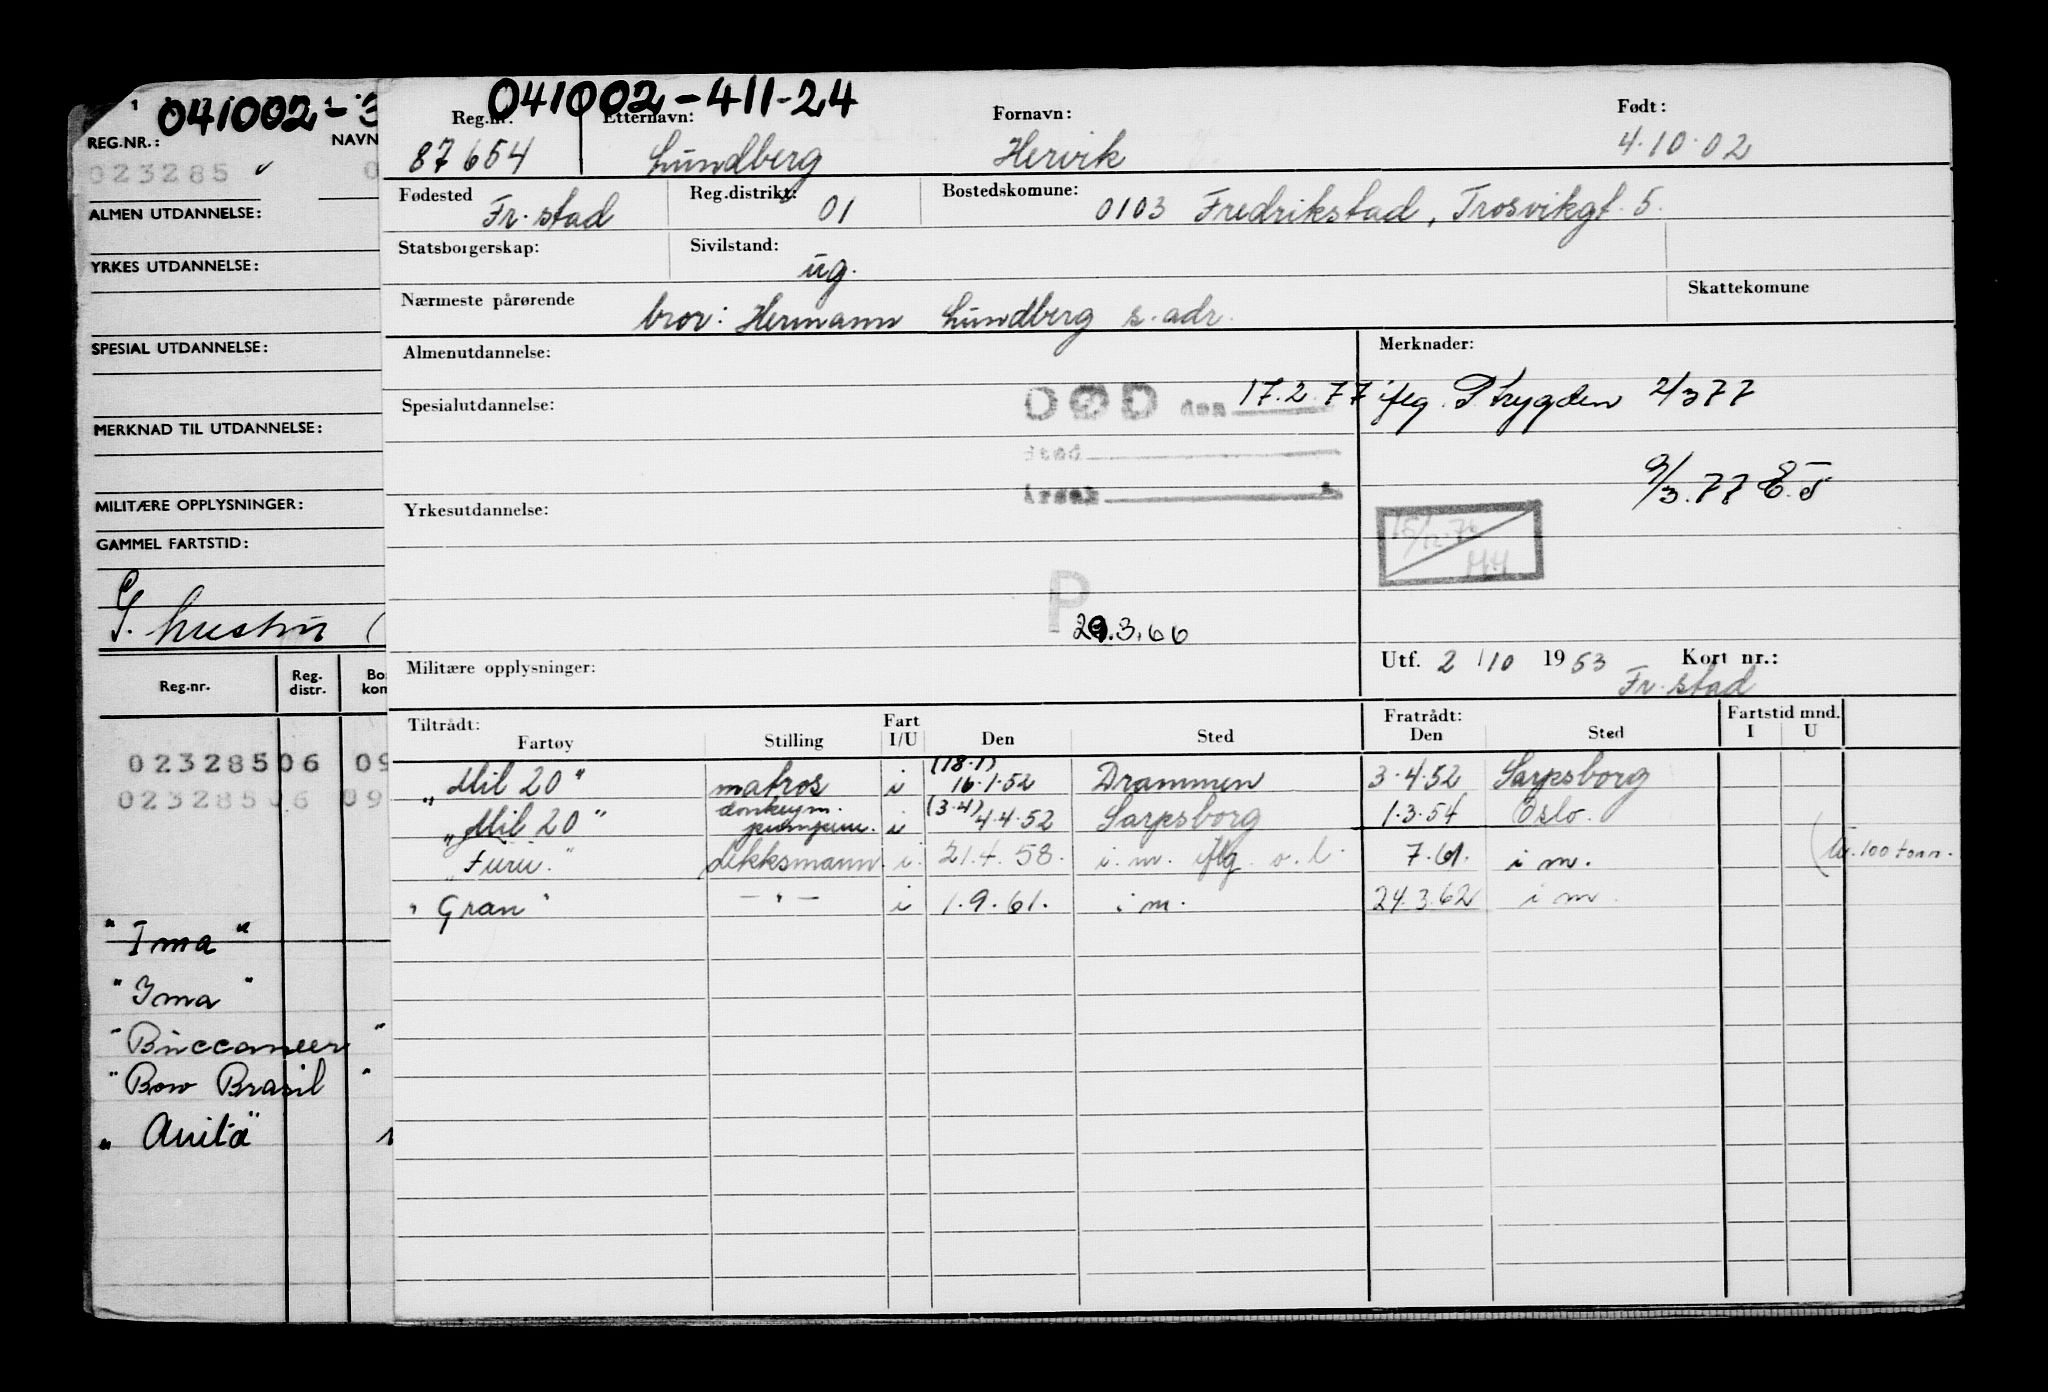 041002-3
REG.NR.:
NAVN
023285
0
ALMEN UTDANNELSE:
YRKES UTDANNELSE:
SPESIAL UTDANNELSE:
MERKNAD TIL UTDANNELSE:
MILITÆRE OPPLYSNINGER:
GAMMEL FARTSTID:
Reg.nr. Reg. distr. Bo kom
023285 06 09
023285 06 09
"Ima"
"Ima"
"Buccaneer"
"Bow Brasil"
"Anita"
041002-411-24
Reg.nr. Etternavn: Fornavn: Født:
87654 Lundberg Hervik 4.10.02
Fødested Reg.distrikt: Bostedskomune:
Fr.stad 01 0103 Fredrikstad, Trosvikgt. 5.
Statsborgerskap: Sivilstand:
ug.
Nærmeste pårørende Skattekomune
bror: Hermann Lundberg s. adr.
Almenutdannelse: Merknader:
DØD den 17.2.77 iflg. P.trygden 2/3 77
Spesialutdannelse:
Sted
9/3.77
Årsak
Yrkesutdannelse:
15/12.76
HH
P
29.3.66
Militære opplysninger: Utf. 2/10 1953 Kort nr.:
Fr.stad
Tiltrådt: Fart Fratrådt: Fartstid mnd.
Fartøy Stilling I/U Den Sted Den Sted I U
"Mil 20" matros i (18.1) 16.1.52 Drammen 3.4.52 Sarpsborg
"Mil 20" donkeym. i (3.4) 4.4.52 Sarpsborg 1.3.54 Oslo.
"Furu." dekksmann. i. 21.4.58. i.m. iflg. o.l. 7.61. i m. 100 tonn.
"Gran" -"- i 1.9.61. i m. 24.3.62 i m.